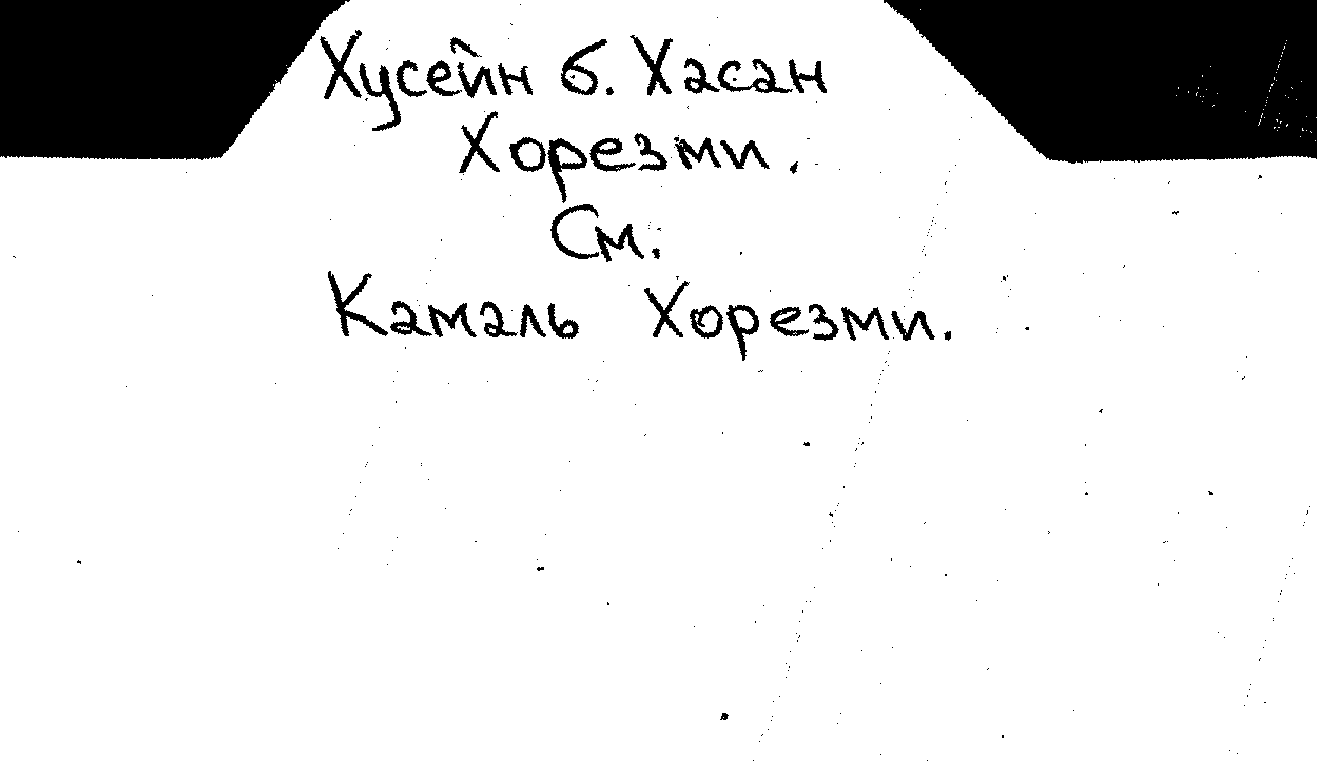 Хусейн б. Хасан
Хорезми.
См.
Камаль Хорезми.